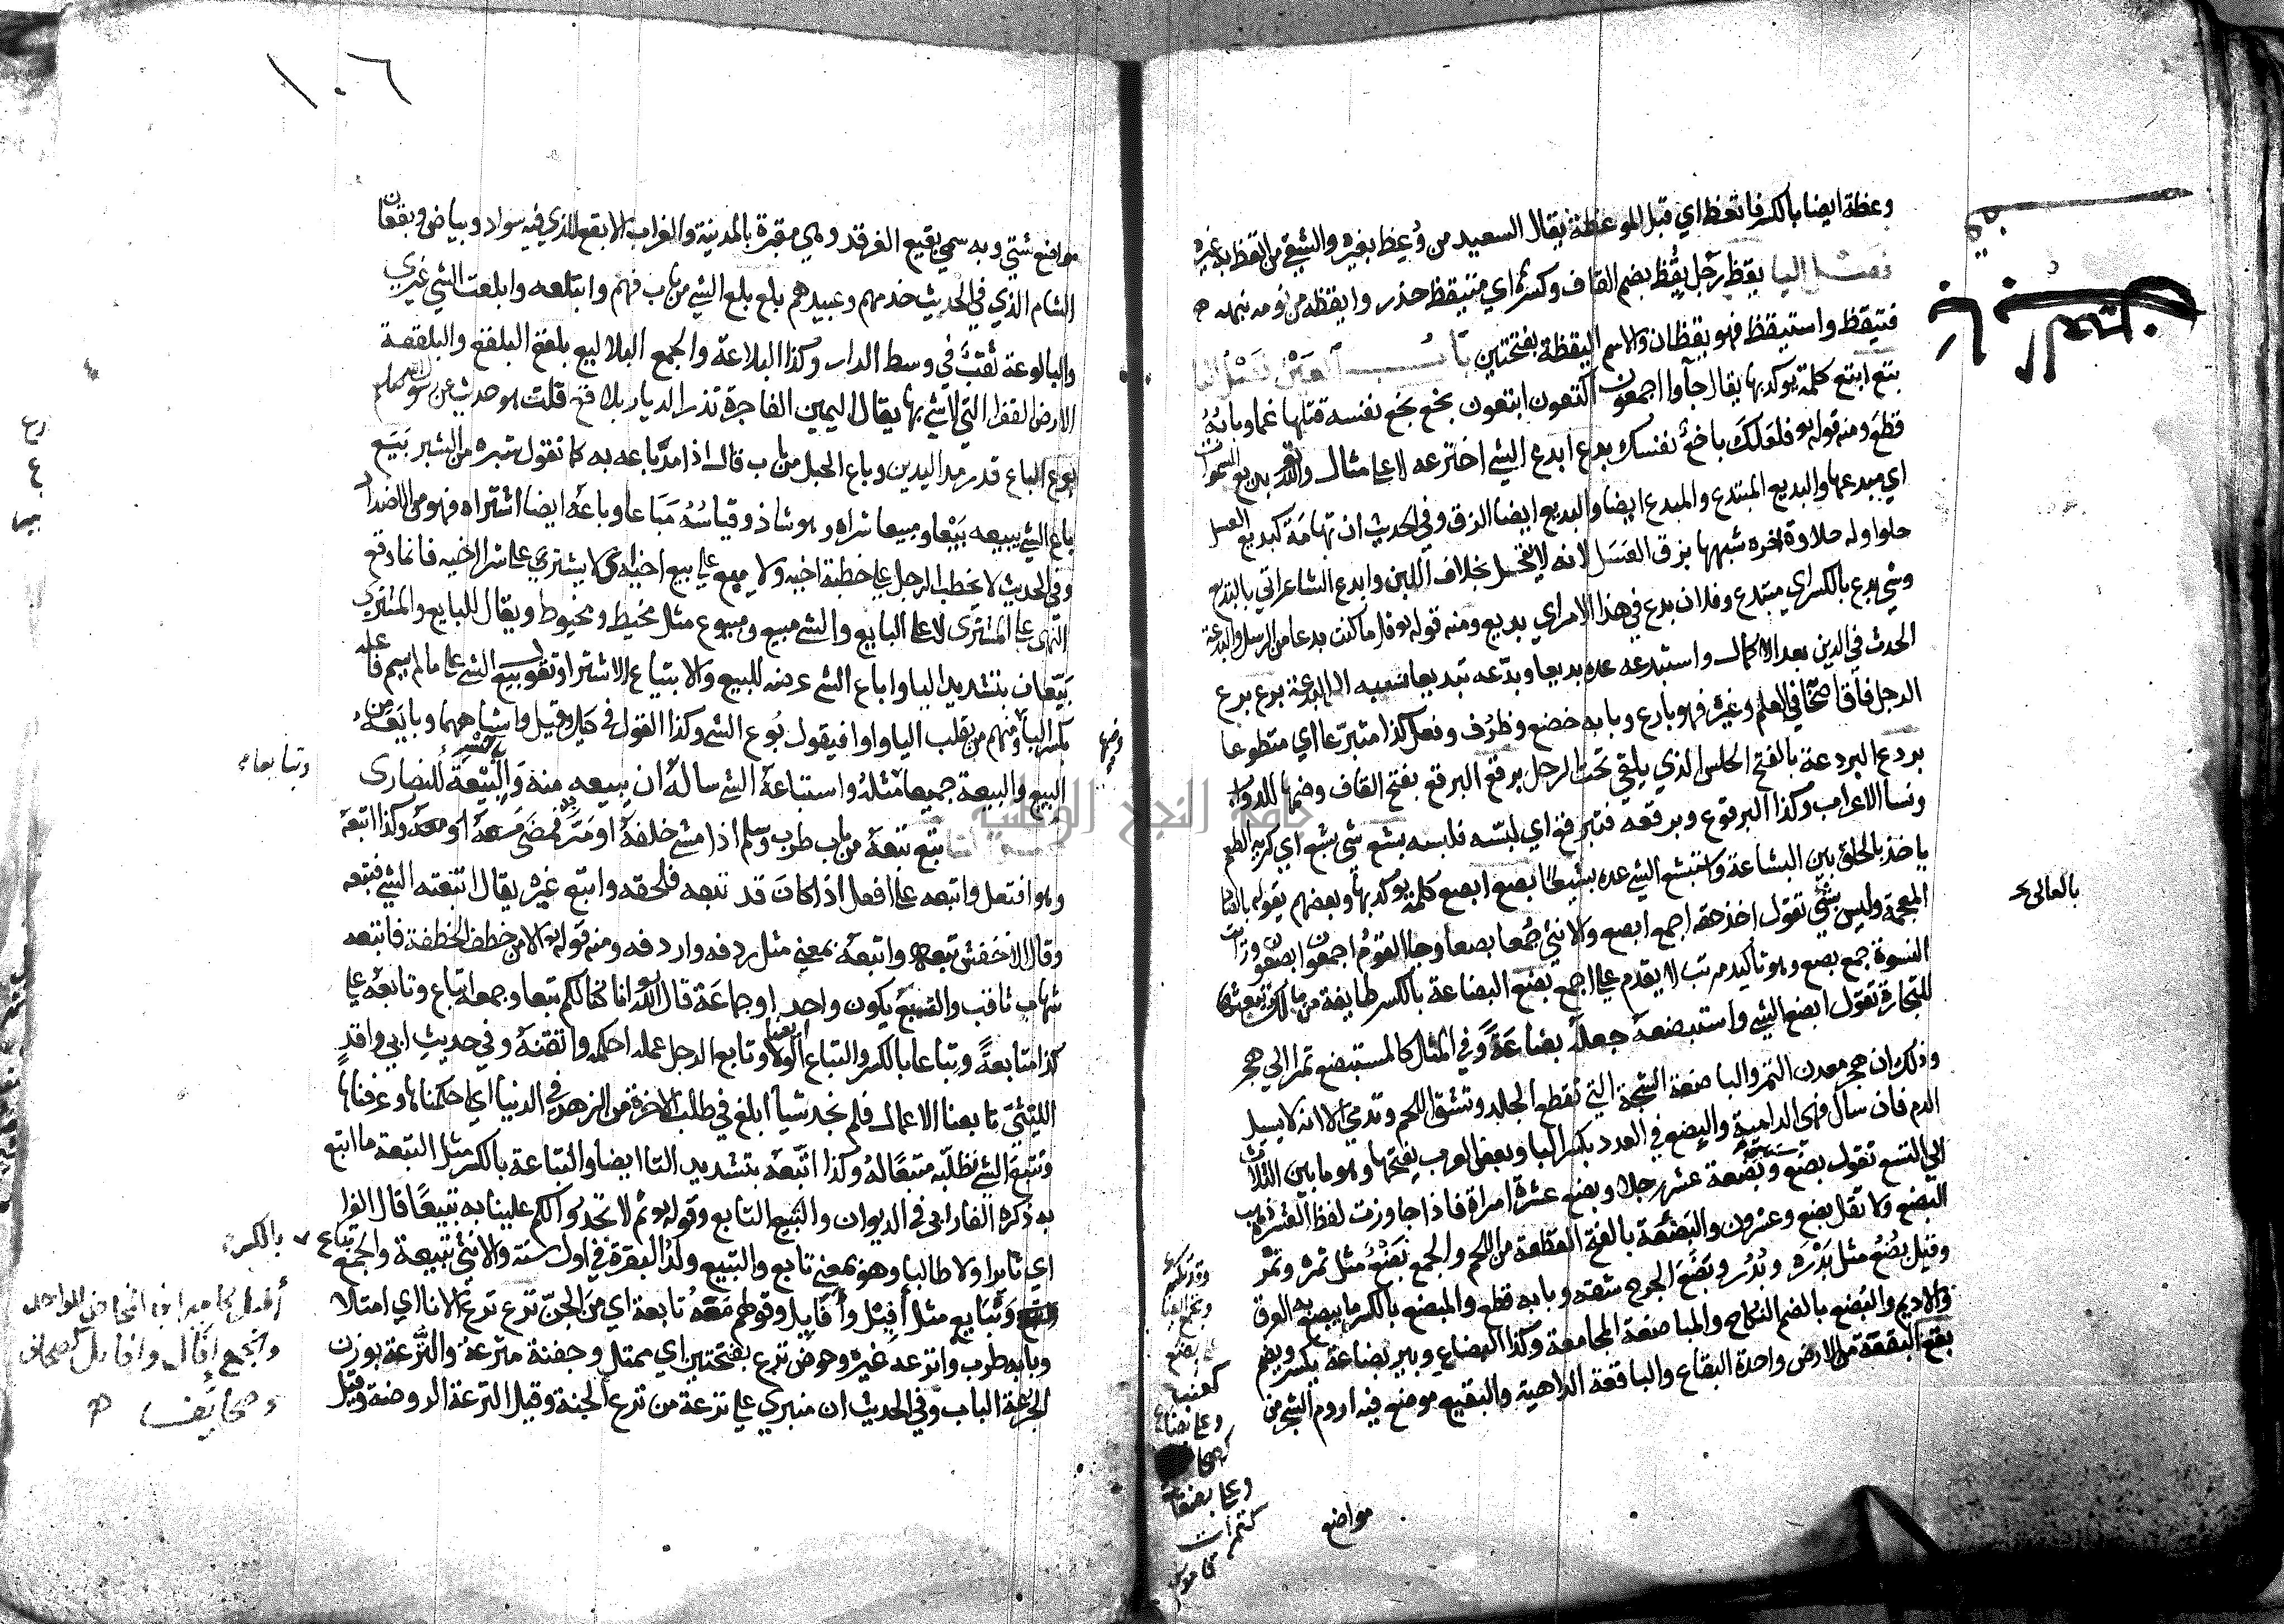 وعظة ايضا بالكسر فاتعظ اي قبل الموعظة يقال السعيد من وُعِظ بغيره والشقي من اتعظ به غيره
فصل اليا يقظ رجل يقُظ بضم القاف وكسرها اي متيقظ حذر وايقظه من نومه نبهه
فتيقظ واستيقظ فهو يقظان والاسم اليقظة بفتحتين باب العين فصل البا
بتع ابتع كلمة يوكد بها يقال جآوا اجمعون اكتعون ابتعون بخع بخع نفسه قتلها غما وبابُهُ
قطع ومنه قوله تع فلعلك باخعٌ نفسك بدع ابدع الشي اخترعه لا على مثال والله تع بديع السموات
اي مبدعها والبديع المبتدع والمبدع ايضا والبديع ايضا الزق وفي الحديث ان تهامة كبديع العسل
حلو اوله حلاوة اخره شبهها بزق العسل لانه لا يتغير بخلاف اللبن وابدع الشاعر اتي بالبديع
وشي بدع بالكسر اي مبتدع وفلان بدع في هذا الامر اي بديع ومنه قوله تع قل ما كنت بدعا من الرسل والبدعة
الحدث في الدين بعد الاكمال واستبدعه عده بديعا وبدّعه تبديعا نسبه الى البدعة برع برع
الرجل فاق اصحابه في العلم وغيره فهو بارع وبابه خضع وظرُف وفعل كذا متبرّعا اي متطوعا
بردع البردعة بالفتح الحلس الذي يلقي تحت الرحل برقع البرقع بفتح القاف وضمها للدواب
ونسا الاعراب وكذا البرقوع وبرقعه فتبرقع اي لبسّه فلبسه بشع شي بشع اي كريه الطعم
ياخذ بالحلق بين البشاعة واستبشع الشي عده بشيعًا بصع ابصع كلمة يوكد بها وبعضهم يقوله بالضاد
المعجمة وليس بشي تقول اخذ حقه اجمع ابصع والانثي جمعا بصعا وجا القوم اجمعون ابصعون ورايت
النسوة جمع بصع وهو تاكيد مرتب لا يقدم على اجمع بضع البضاعة بالكسر طايفة من مالك تبعثها
للتجارة تقول ابضع الشي واستبضعه جعله بضاعةً وفي المثل كالمستبضع تمرا الي هجر
وذلك ان هجر معدن التمر والباضعة الشجة التي تقطع الجلد وتشق اللحم وتدمي الا انه لا يسيل
الدم فان سال فهي الدامية والبضع في العدد بكسر البا وبعض العرب يفتحها وهو ما بين الثلاث
الي التسع تقول بضع سنين وبضعة عشر رجلا وبضع عشرة امراة فاذا جاوزت لفظ العشرة ذهب
البضع ولا تقل بضع وعشرون والبَضعة بالفتح القطعة من اللحم والجمع بَضْعٌ مثل تمرة وتمر
وقيل بِضَعٌ مثل بَدْرة وبِدَر وبَضَع الجرح شقه وبابه قطع والمبضع بالكسر ما يبضع به العرق
والاديم والبضع بالضم النكاح والمباضعة المجامعة وكذا البضاع وبير بضاعة بكسر وبضم
بقع البقعة من الارض واحدة البقاع والباقعة الداهية والبقيع موضع فيه اروم الشجر من
مواضع
بالعالي
١٠٦
مواضع شتي وبه سمي بقيع الغرقد وهي مقبرة بالمدينة والغراب الابقع الذي فيه سواد وبياض وبقعان
الشام الذي في الحديث خدمهم وعبيدهم بلع بلع الشي من باب فهم وابتلعه وابلعت الشي غيري
والبالوعة ثقبٌ في وسط الدار وكذا البلاعة والجمع البلاليع بلقع البلقع والبلقعة
الارض القفر التي لا شي بها يقال اليمين الفاجرة تذر الديار بلاقع قلت هو حديث عن رسول الله صلعم
بوع الباع قدر مد اليدين وباع الحبل من باب قال اذا مدّ باعه به كما تقول شبره من الشبر بيع
باع الشي يبيعه بَيْعا ومبيعا شراه وهو شاذ وقياسُهُ مَبَاعا وباعه ايضا اشتراه فهو من الاضداد
وفي الحديث لا يخطب الرجل على خطبة اخيه ولا يبيع على بيع اخيه اي لا يشتري على شرا اخيه فانما وقع
النهي على المشتري لا على البايع والشي مبيع ومبيوع مثل مخيط ومخيوط ويقال للبايع والمشتري
بَيّعان بتشديد اليا واباع الشي عرضه للبيع والابتياع الاشترا وتقول بيع الشي على ما لم يسم فاعله
بكسر البا ومنهم من يقلب اليا واوا فيقول بُوع الشي وكذا القول في كيل وقيل واشباههما وبايَعه من
البيع والبيعة جميعا وتبايعا مثله واستباعه الشي ساله ان يبيعه منه والبِيعَة بالكسر للنصاري
فصل التا تبع تبعه من باب طرب وسلم اذا مشي خلفه او مرّ به فمضي معه وكذا اتبعه
وهو افتعل واتبعه على افعل اذا كان قد تبعه فلحقه واتبع غيره يقال اتبعته الشي فتبعه
وقال الاخفش تبعه واتبعه بمعني مثل ردفه واردفه ومنه قوله تع الا من خطف الخطفة فاتبعه
شهاب ثاقب والتبع يكون واحدا وجماعة قال الله تع انا كنا لكم تبعا وجمعه اتباع وتابعه على
كذا متابعةً وتباعا بالكسر والتباع ايضا الولا وتابع الرجل عمله احكمه واتقنه وفي حديث ابي واقدٍ
الليثيّ تابعنا الاعمال فلم نجد شيا ابلغ في طلب الاخرة من الزهد في الدنيا اي احكمناها وعرفناها
وتتبع الشي تطلبّه متبعًا له وكذا اتّبعه بتشديد التا ايضا والتباعة بالكسر مثل التبعة ما اتبع
به ذكره الفارابي في الديوان والتبيع التابع وقوله تع ثم لا تجدوا لكم علينا به تبيعًا قال الفرا
اي ثائرا ولا طالبا وهو بمعني تابع والتبيع ولدُ البقرة في اول سنه والانثي تبيعة والجمع تباع بالكسر
وتبايع مثل أفيل وأفايل وقولهم معهُ تابعة اي من الجنّ ترع ترع الانا اي امتلا
وبابه طرب واترعه غيره وحوض ترع بفتحتين اي ممتل وجفنة مترعة والتُّرعة بوزن
الجرعة الباب وفي الحديث ان منبري على ترعة من ترع الجنة وقيل الترعة الروضة وقيل